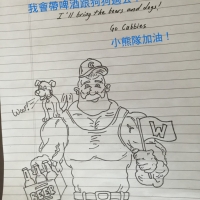 我會帶啤酒跟狗狗過去！
I'll bring the beers and dogs!
Go Cubbies
小熊隊加油！
Woof!
C
W
BEER